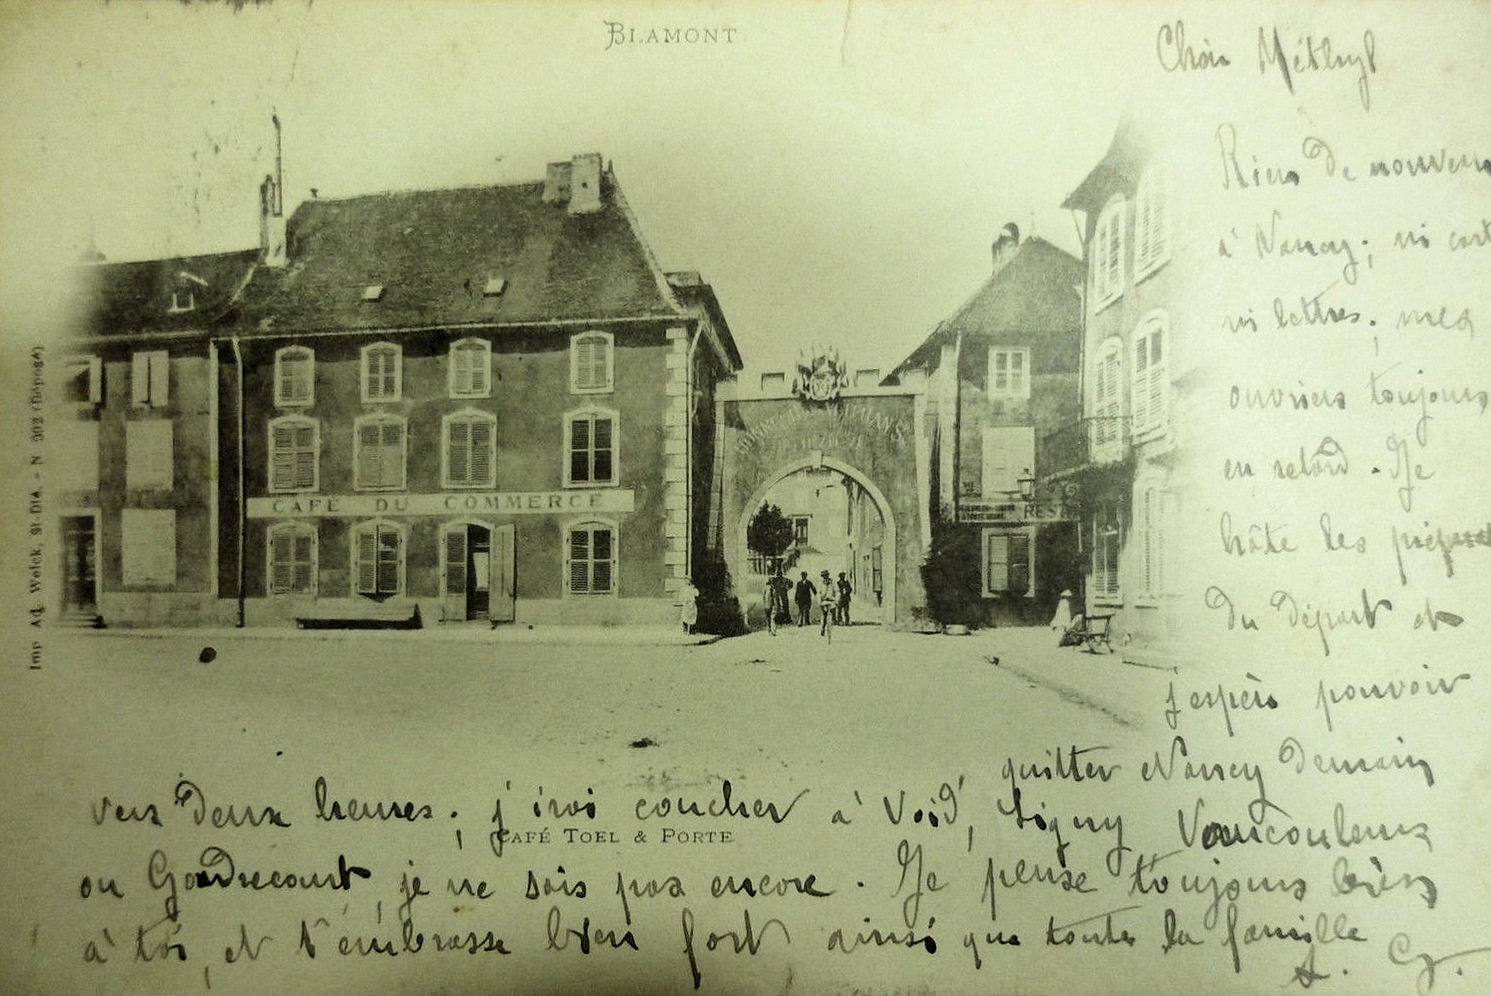 BLAMONT
Rien de nouveau
à Nancy; ni cart
ni lettres; mes
ouvriers toujours
en retard. Je
hâte les
du départ et
j'espère pouvoir
quitter Nancy demain
vers deux heures; j'irai coucher à Void, Ligny Vaucouleurs
ou Gondrecourt, je ne sais pas encore. Je pense toujours bien
à toi, et t'embrasse bien fort ainsi que toute la famille
CAFÉ TOEL & PORTE
CAFE DU COMMERCE
REST
Imp Ad. Weick, St-Dié. - N 302 (Déposé)